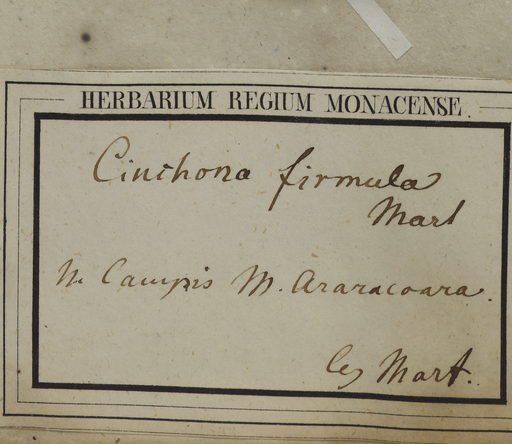 HERBARIUM REGIUM MONACENSE.
Cinchona firmula
Mart
In Campis M. Araracoara.
leg Mart.